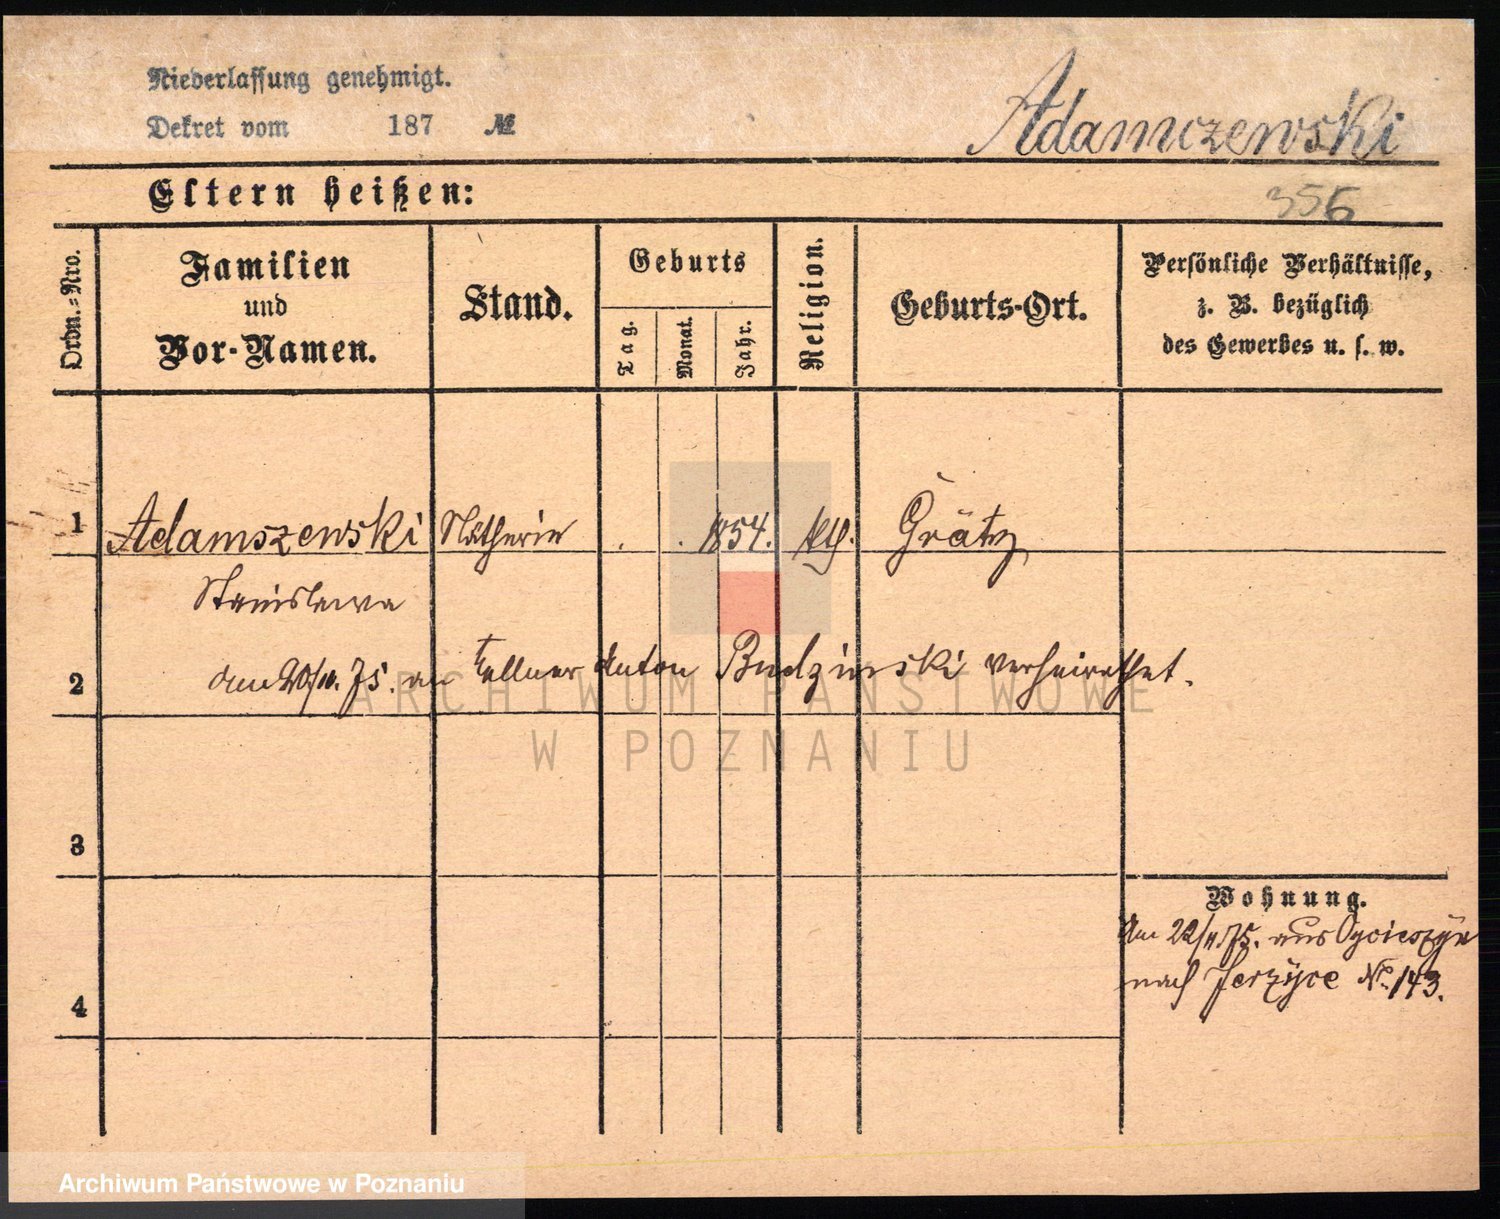 Niederlassung genehmigt.
Dekret vom 187 №
Adamczewski
Eltern heißen:
356
Ordn.-Nro.
Familien
und
Vor-Namen.
Stand.
Geburts
Tag.
Monat.
Jahr.
Religion.
Geburts-Ort.
Persönliche Verhältnisse,
z. B. bezüglich
des Gewerbes u. s. w.
1 Adamszewski Nätherin . . 1854. kth. Grätz
Stanislawa
2 am 20/10. 75. an Kellner Anton Budzinski verheirathet.
ARCHIWUM PAŃSTWOWE
W POZNANIU
3
Wohnung.
Am 22/11 75. aus
nach Jerzyce No. 143.
4
Archiwum Państwowe w Poznaniu